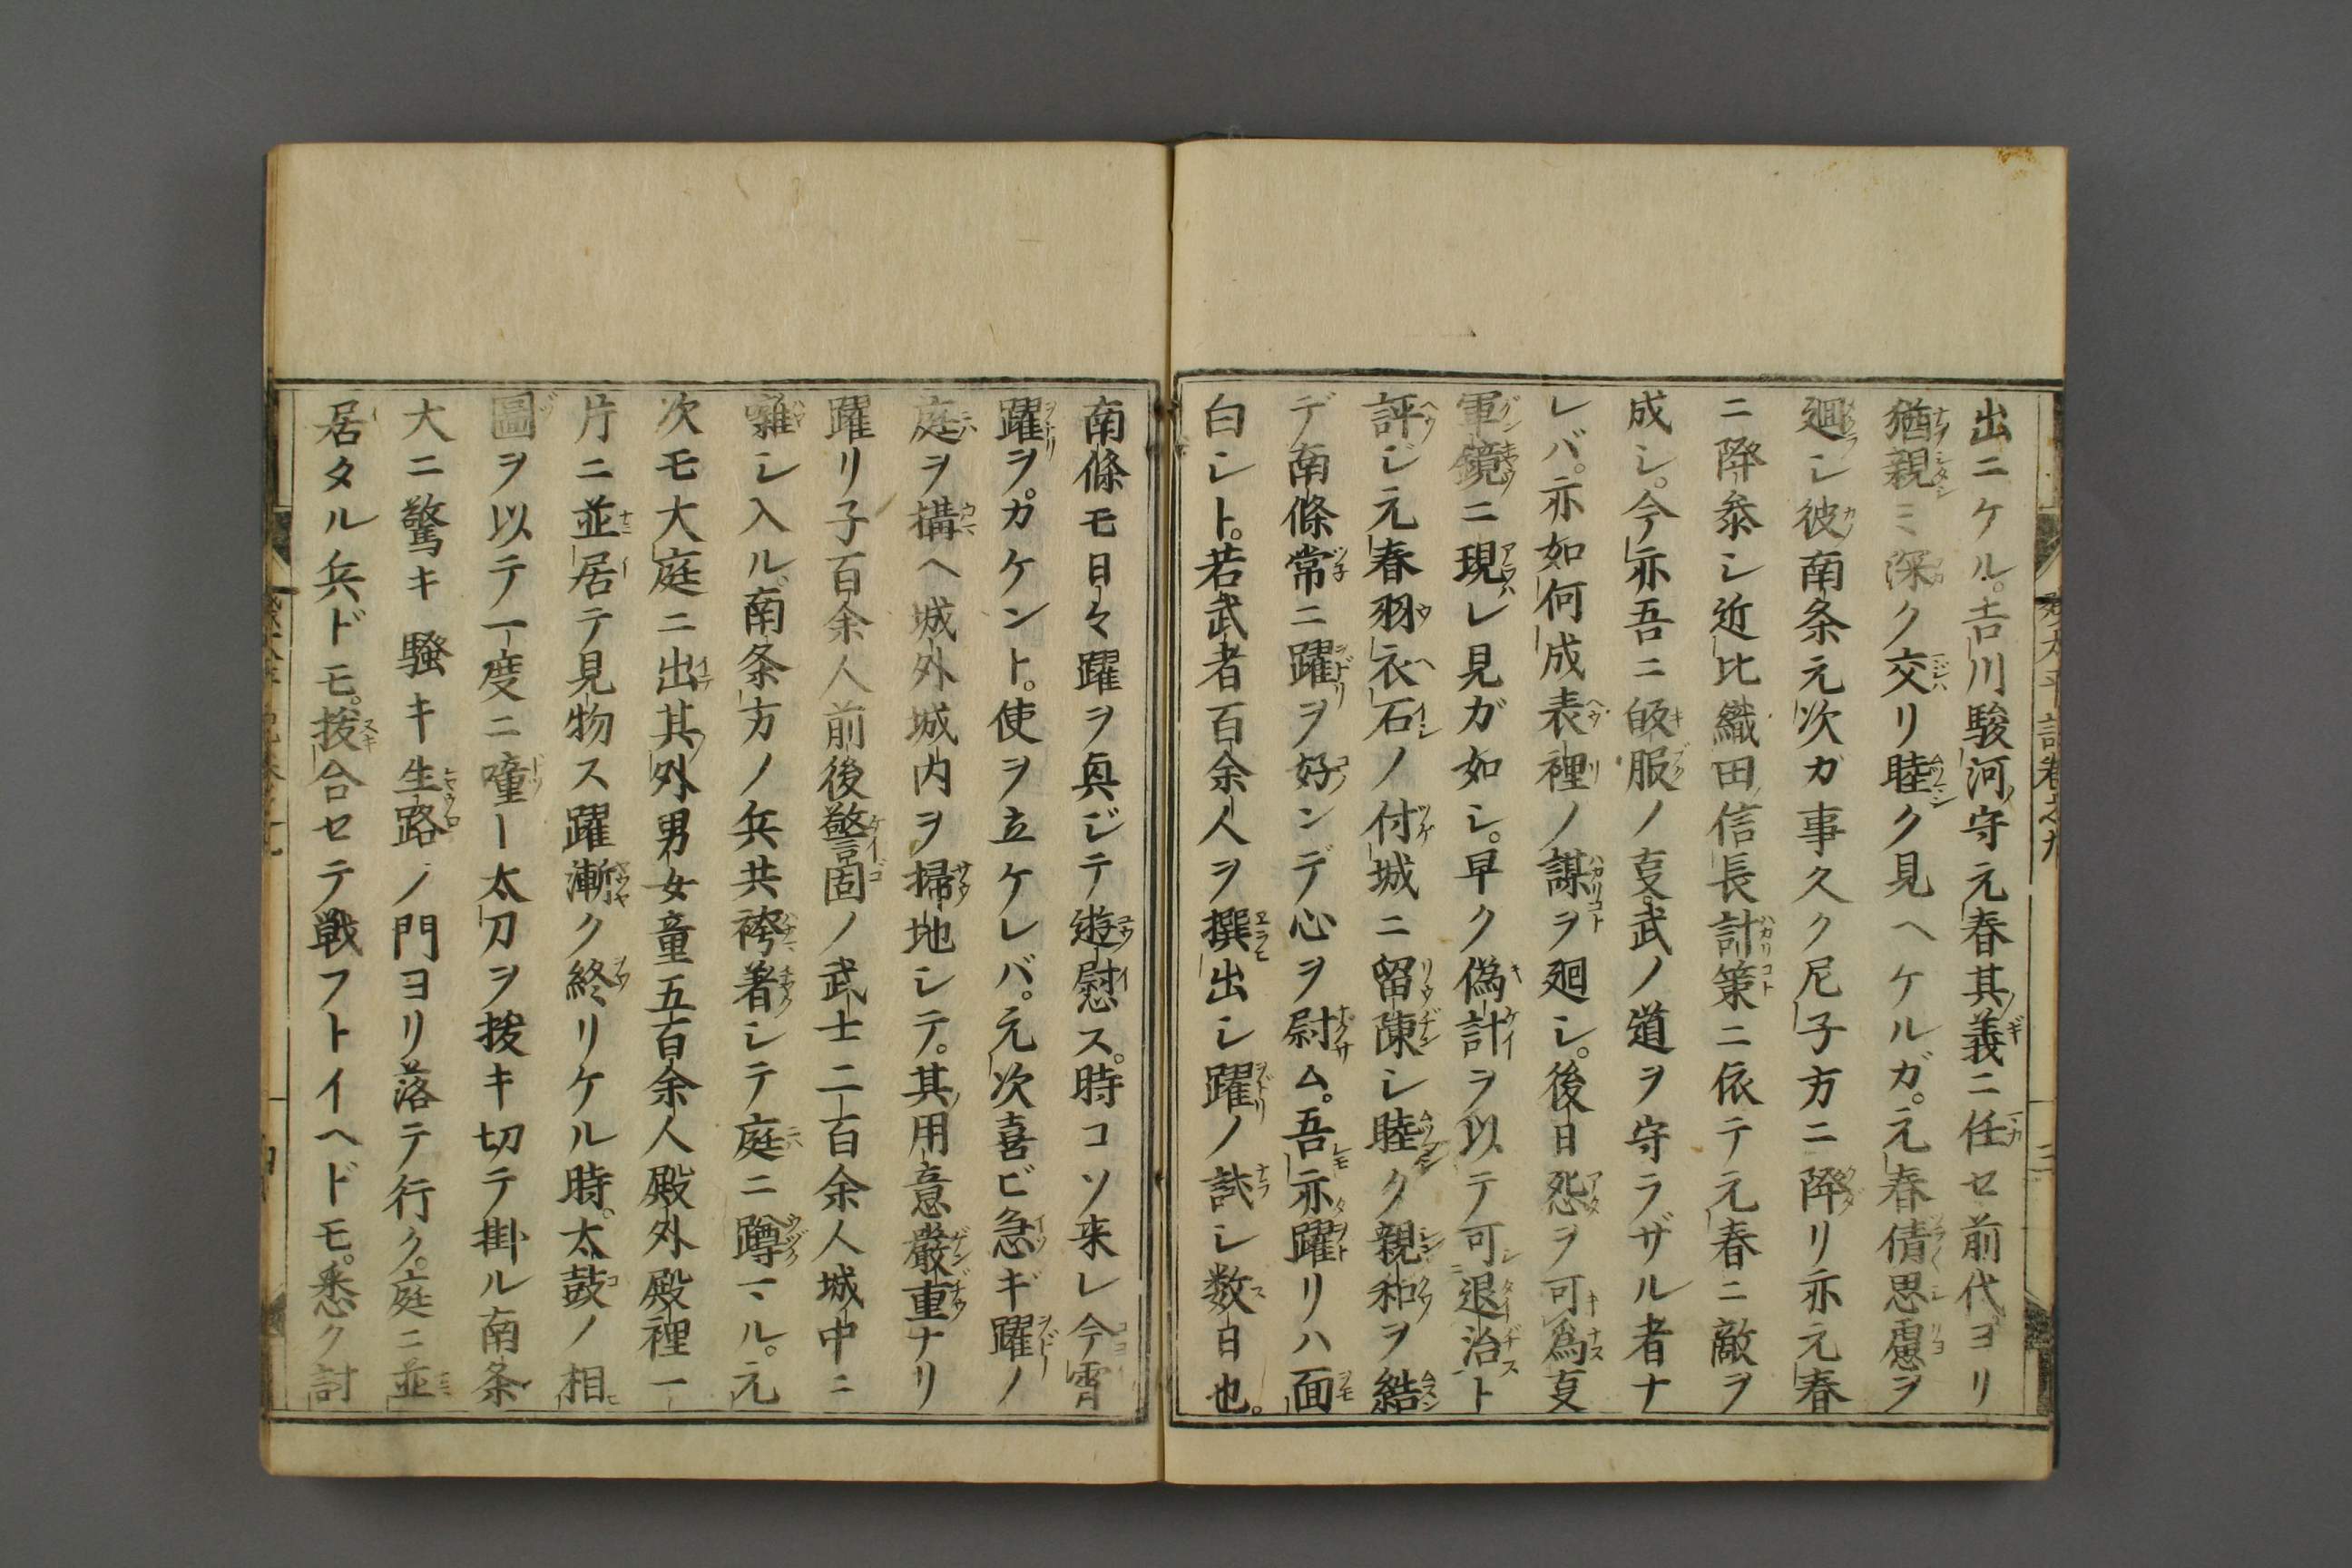 出ニケル。吉川駿河ノ守元春其ノ義ニ任セ前代ヨリ
猶親ミ深ク交リ睦ク見ヘケルガ。元春倩思慮ヲ
廻シ彼南条元次ガ事久ク尼子方ニ降リ亦元春
ニ降参シ近比織田信長計策ニ依テ元春ニ敵ヲ
成シ。今亦吾ニ皈服ノ叓武ノ道ヲ守ラザル者ナ
レバ。亦如何成表裡ノ謀ヲ廻シ。後日怨ヲ可爲叓
軍鏡ニ現レ見ガ如シ。早ク偽計ヲ以テ可退治ト
評ジ元春羽衣石ノ付城ニ留陳シ睦ク親和ヲ結
デ南條常ニ躍ヲ好ンデ心ヲ尉ム。吾亦躍リハ面
白シト。若武者百余人ヲ撰出シ躍ノ誘シ数日也。
南條モ日々躍ヲ真ジテ遊慰ス。時コソ来レ今霄
躍ヲ。カケント。使ヲ立ケレバ。元次喜ビ急ギ躍ノ
庭ヲ構ヘ城外城内ヲ掃地シテ。其ノ用意嚴重ナリ
躍リ子百余人前後警固ノ武士二百余人城中ニ
囃シ入ル。南条方ノ兵共袴著シテ庭ニ蹲マル。元
次モ大庭ニ出其ノ外男女童五百余人殿外殿裡一
片ニ並居テ見物ス躍漸ク終リケル時。太鼓ノ相
圖ヲ以テ一度ニ噇ー太刀ヲ拔キ切テ掛ル南条
大ニ驚キ騒キ生路ノ門ヨリ落テ行ク。庭ニ並
居タル兵ドモ。拔合セテ戦フトイヘドモ。悉ク討